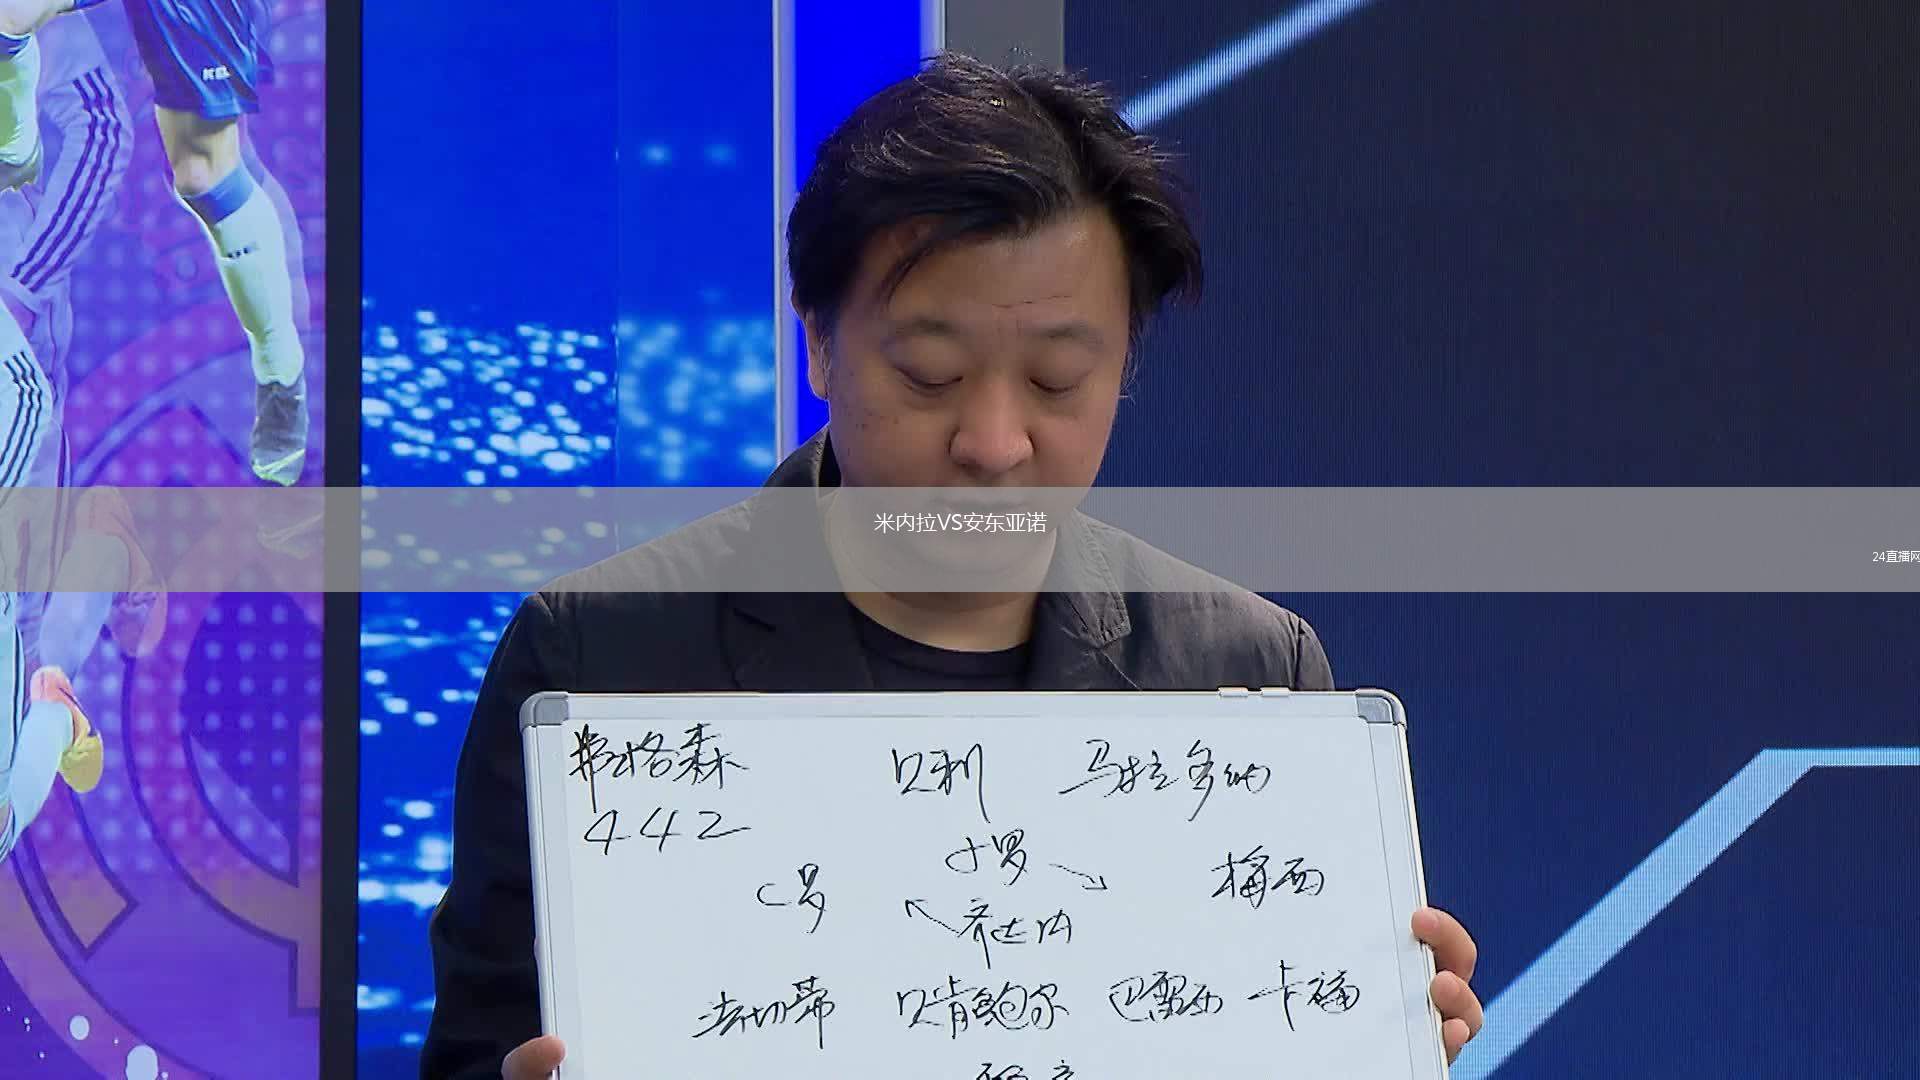 米内拉VS安东亚诺
24直播网
弗格森 贝利 马拉多纳
442
小罗
C罗 梅西
齐达内
法切蒂 贝肯鲍尔 巴雷西 卡福